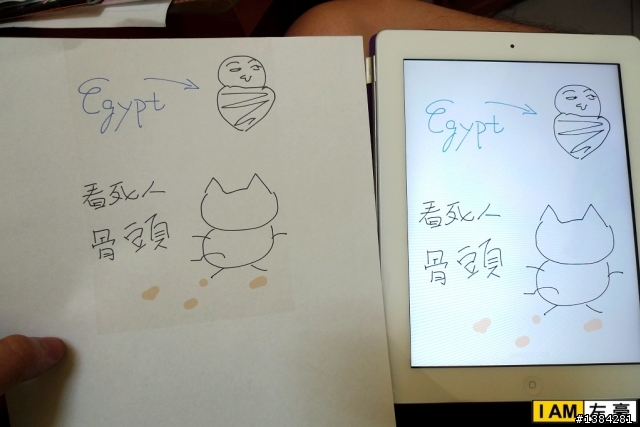 Egypt
看死人
骨頭
Egypt
看死人
骨頭
I AM 左高
#1384281